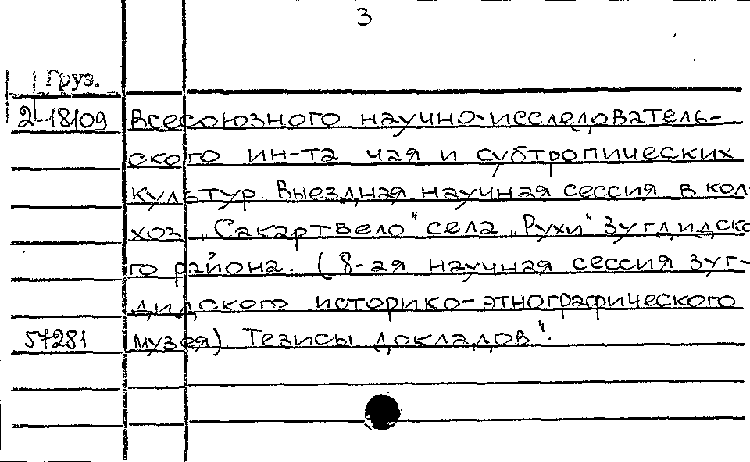 3
Груз.
2-18109 Всесоюзного научно-исследователь-
ского ин-та чая и субтропических
культур. Выездная научная сессия в кол-
хоз „Сакартвело" села „Рухи" Зугдидско
го района. (8-ая научная сессия Зуг-
дидского историко-этнографического
57281 музея) Тезисы докладов".